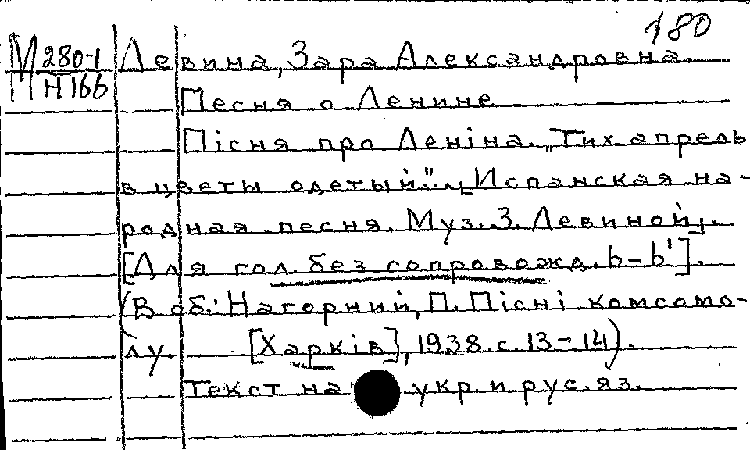 180
М 280-1 Левина, Зара Александровна.
Н 166
Песня о Ленине
Пісня про Леніна. „Тих апрель
в цветы одетый". [Испанская на-
родная песня. Муз. З. Левиной].
[Для гол. без сопровожд. b-b¹].
(В об.: Нагорний, П. Пісні комсомо-
лу. [Харків], 1938. с. 13-14).
Текст на укр. и рус. яз.